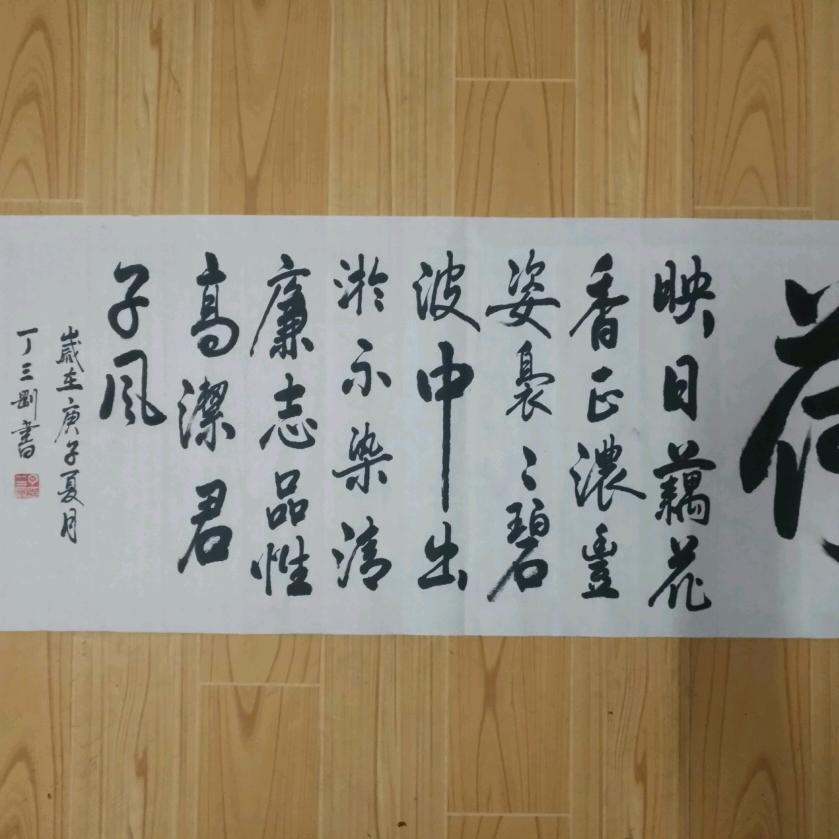 荷
映日藕花
香正濃豐
姿裊〻碧
波中出
淤不染清
廉志品性
高潔君
子风
歲在庚子夏月
丁三剛書